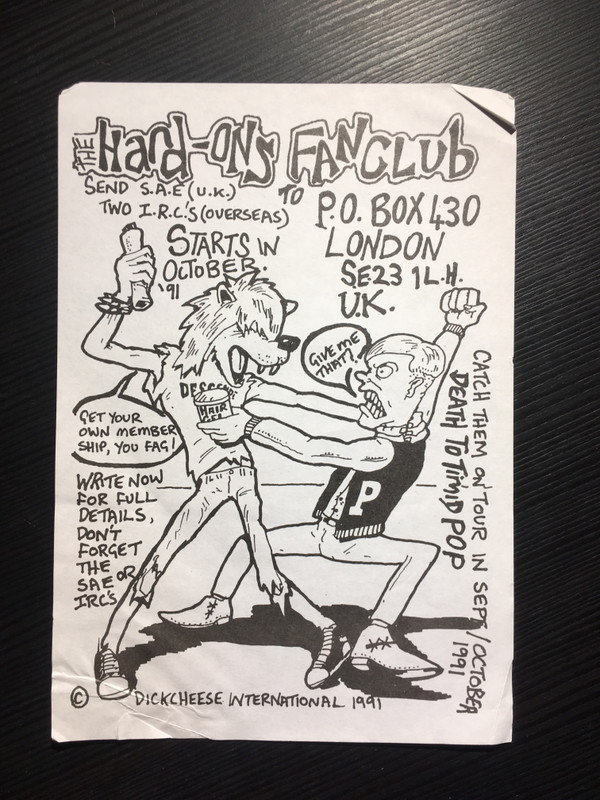 THE HARD-ONS FANCLUB
SEND S.A.E (U.K.)
TWO I.R.C.'S (OVERSEAS)
TO
P.O. BOX 430
LONDON
SE23 1L.H.
U.K.
STARTS IN
OCTOBER.
'91
GIVE ME
THAT!
HAIR
GET YOUR
OWN MEMBER
SHIP, YOU FAG!
P
WRITE NOW
FOR FULL
DETAILS,
DON'T
FORGET
THE
SAE OR
IRC'S
CATCH THEM ON TOUR IN SEPT/OCTOBER
1991
DEATH TO TIMID POP
© DICKCHEESE INTERNATIONAL 1991